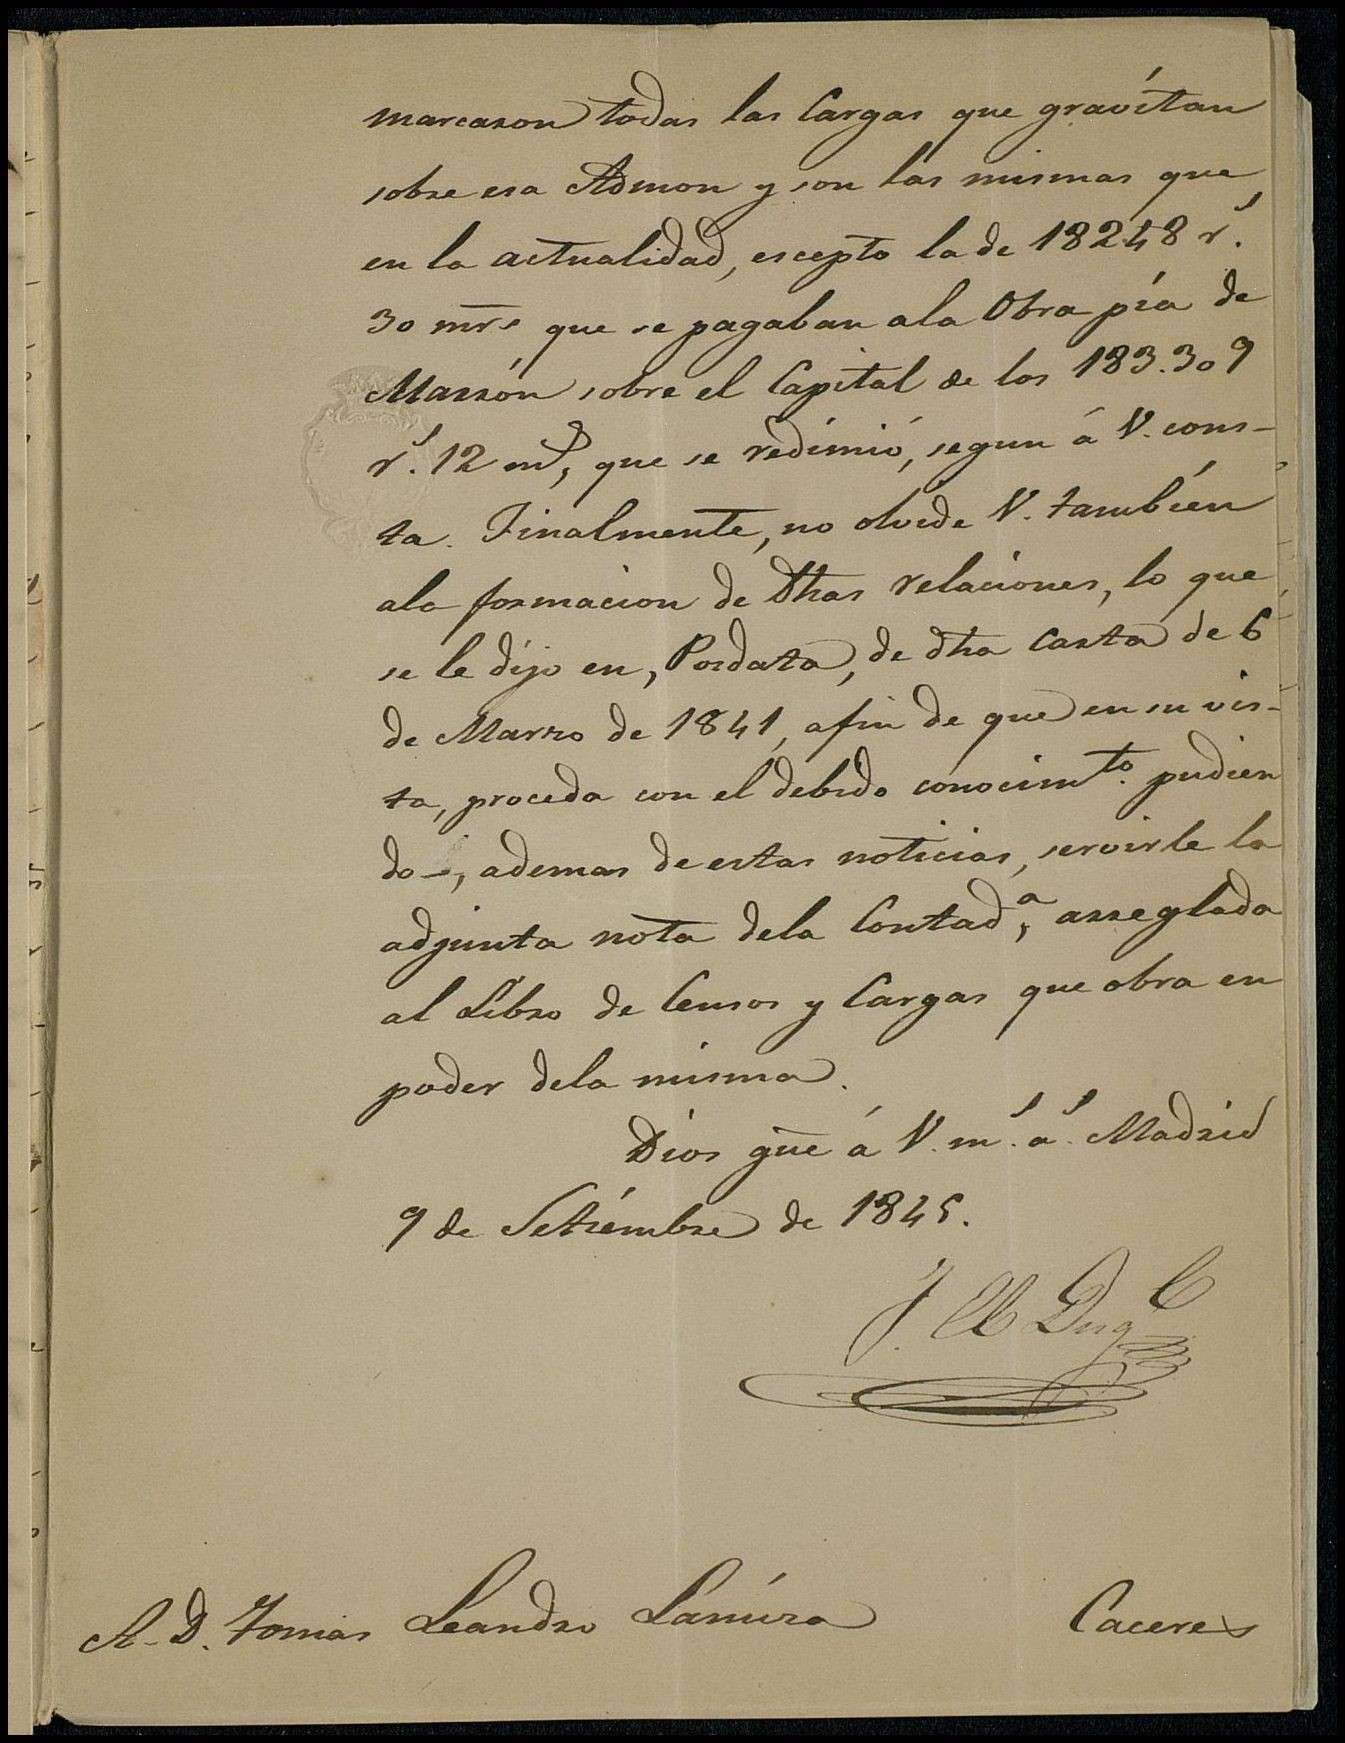 marcaron todas las Cargas que gravitan
sobre esa Admon y son las mismas que
en la actualidad, escepto la de 18248 r.s
30 mrs que se pagaban ala Obra pía de
Marrón sobre el Capital de los 183.309
r.s 12 ms, que se redimió, segun á V. cons-
ta. Finalmente, no olvide V. tambien
ala formacion de dhas relaciones, lo que
se le dijo en, Posdata, de dha Carta de 6
de Marzo de 1841, afin de que en su vis-
ta, proceda con el debido conocimto. pudien
do, ademas de estas noticias, servirle la
adjunta nota dela Contada, arreglada
al Libro de Censos y Cargas que obra en
poder dela misma.
Dios gue á V. m.s a.s Madrid
9 de Setiembre de 1845.
A. D. Tomas Leandro Lamúza
Caceres